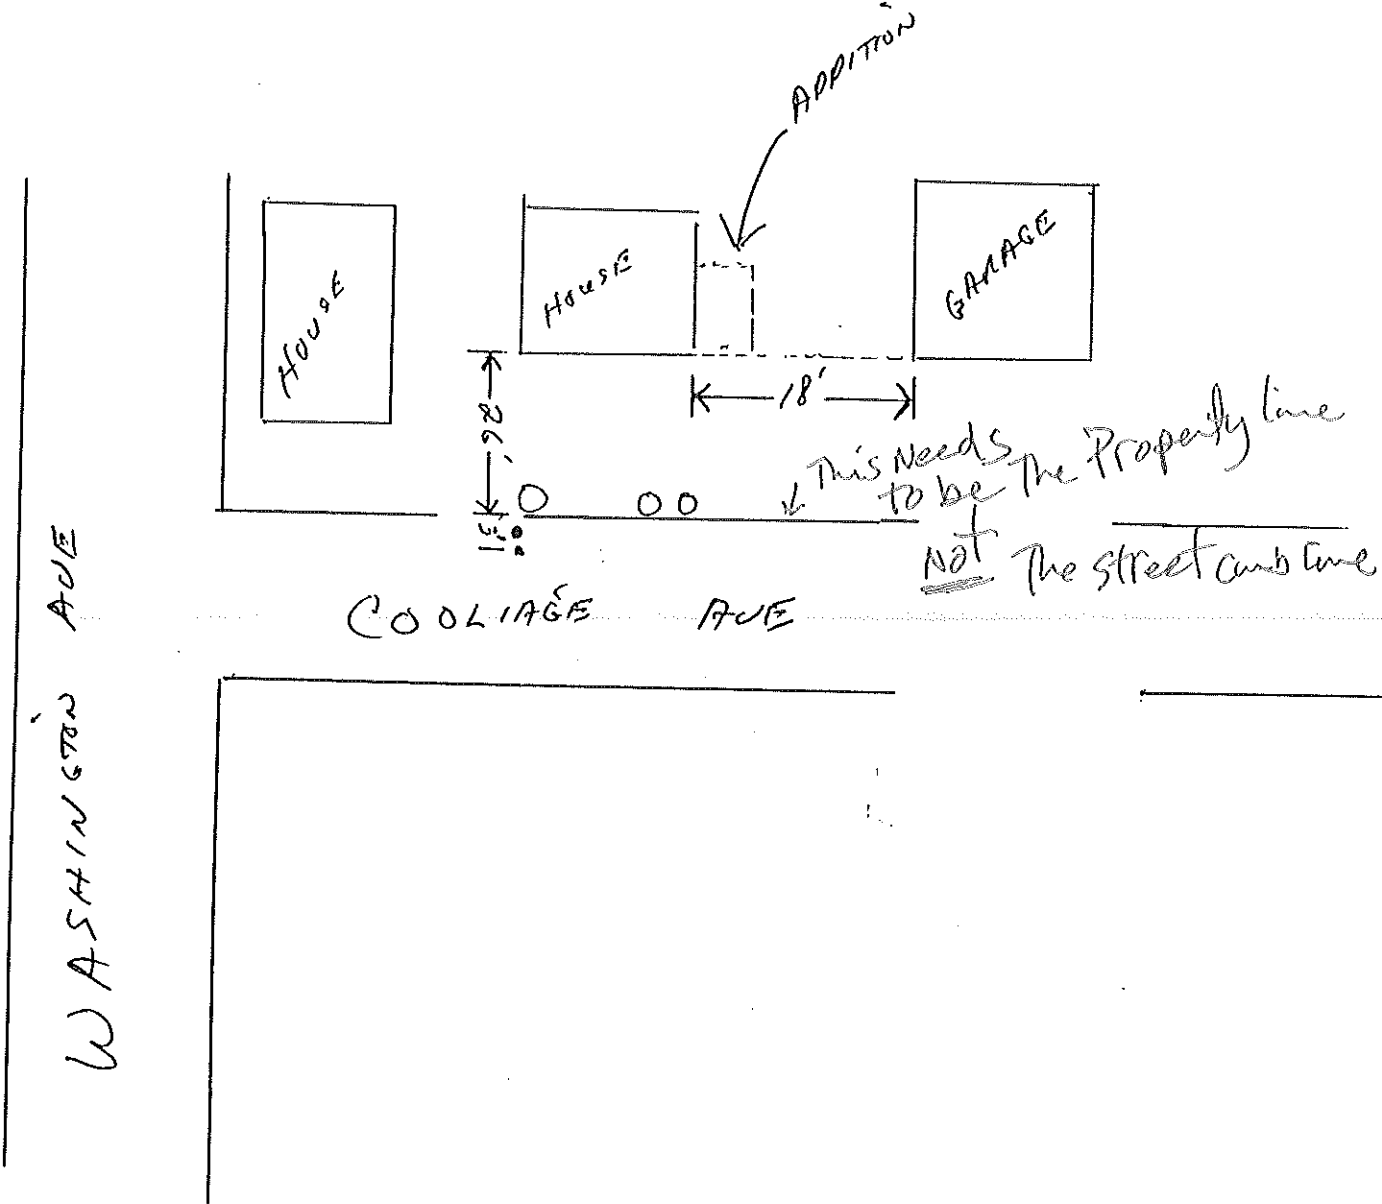 ADDITION
HOUSE
HOUSE
GARAGE
26'
18'
This Needs
to be The Property line
Not The street curb line
COOLIAGE AVE
WASHINGTON AVE